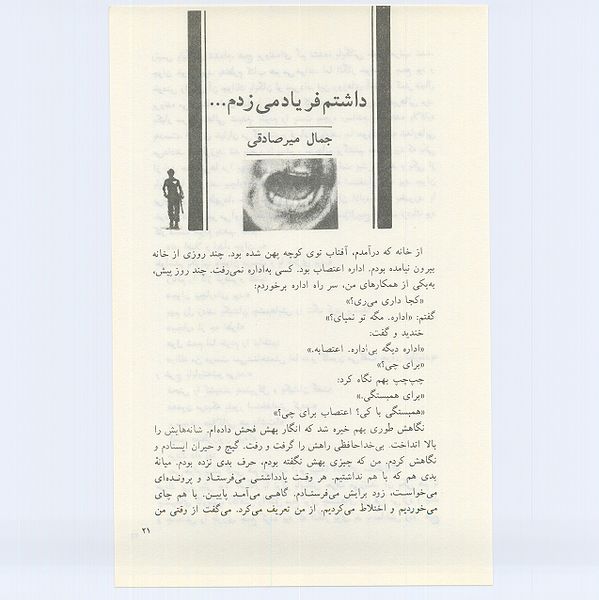 داشتم فریاد می‌زدم...
جمال میرصادقی
از خانه که درآمدم، آفتاب توی کوچه پهن شده بود. چند روزی از خانه
بیرون نیامده بودم. اداره اعتصاب بود. کسی به‌اداره نمی‌رفت. چند روز پیش،
به‌یکی از همکارهای من، سر راه اداره برخوردم:
«کجا داری می‌ری؟»
گفتم: «اداره. مگه تو نمیای؟»
خندید و گفت:
«اداره دیگه بی‌اداره. اعتصابه.»
«برای چی؟»
چپ‌چپ بهم نگاه کرد:
«برای همبستگی.»
«همبستگی با کی؟ اعتصاب برای چی؟»
نگاهش طوری بهم خیره شد که انگار بهش فحش داده‌ام. شانه‌هایش را
بالا انداخت. بی‌خداحافظی راهش را گرفت و رفت. گیج و حیران ایستادم و
نگاهش کردم. من که چیزی بهش نگفته بودم، حرف بدی نزده بودم. میانهٔ
بدی هم که با هم نداشتیم. هر وقت یادداشتی می‌فرستاد و پرونده‌ای
می‌خواست، زود برایش می‌فرستادم. گاهی می‌آمد پایین. با هم چای
می‌خوردیم و اختلاط می‌کردیم. از من تعریف می‌کرد. می‌گفت از وقتی من
۲۱